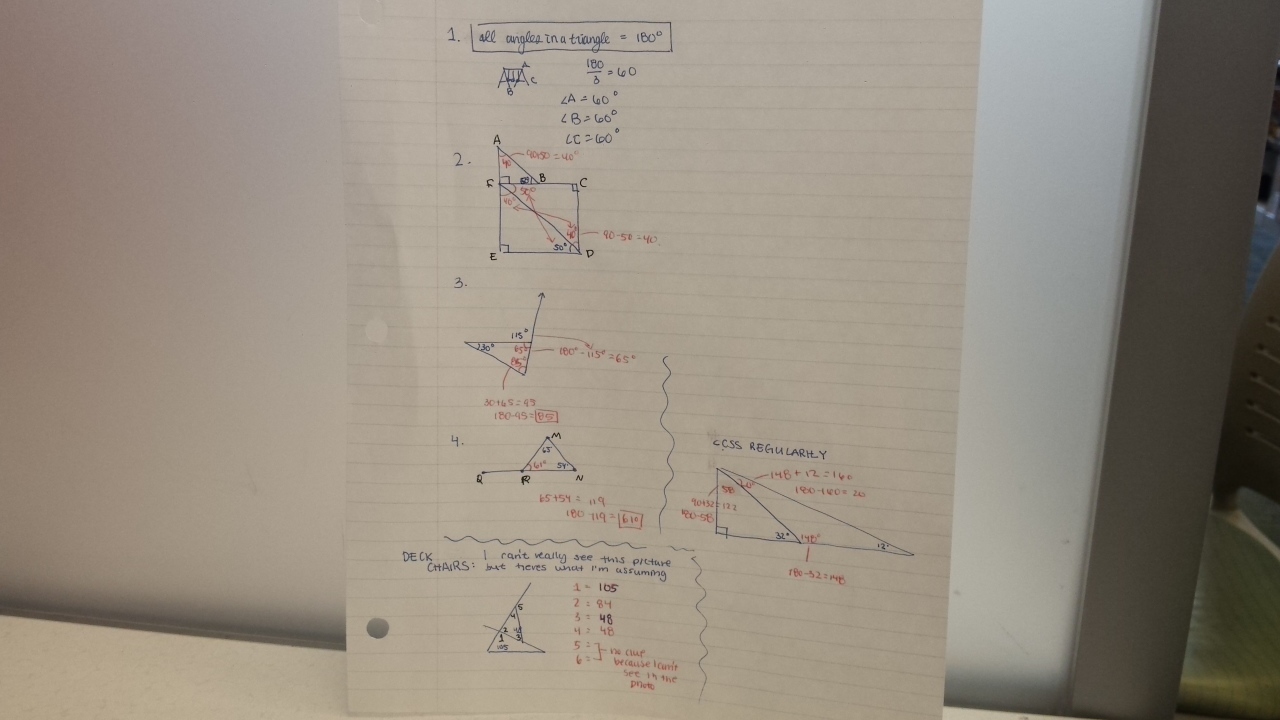 1. all angles in a triangle = 180°
A
C
B
180/3 = 60
∠A = 60°
∠B = 60°
∠C = 60°
2.
A
40
90-50 = 40°
F
50
B
C
50°
40°
40
90-50 = 40
E
50°
D
3.
115°
30°
65°
180° - 115° = 65°
85°
30+65 = 95
180-95 = 85
4.
M
65
61°
54°
Q
R
N
65+54 = 119
180-119 = 61°
CCSS REGULARLY
148 + 12 = 160
180-160 = 20
58
90+32 = 122
180-58
32°
148°
12°
180-32 = 148
DECK CHAIRS: I can't really see this picture
but heres what I'm assuming
1 = 105
2 = 84
3 = 48
4 = 48
5 =
6 =
no clue
because I can't
see in the
photo
5
4
2
3
1
105